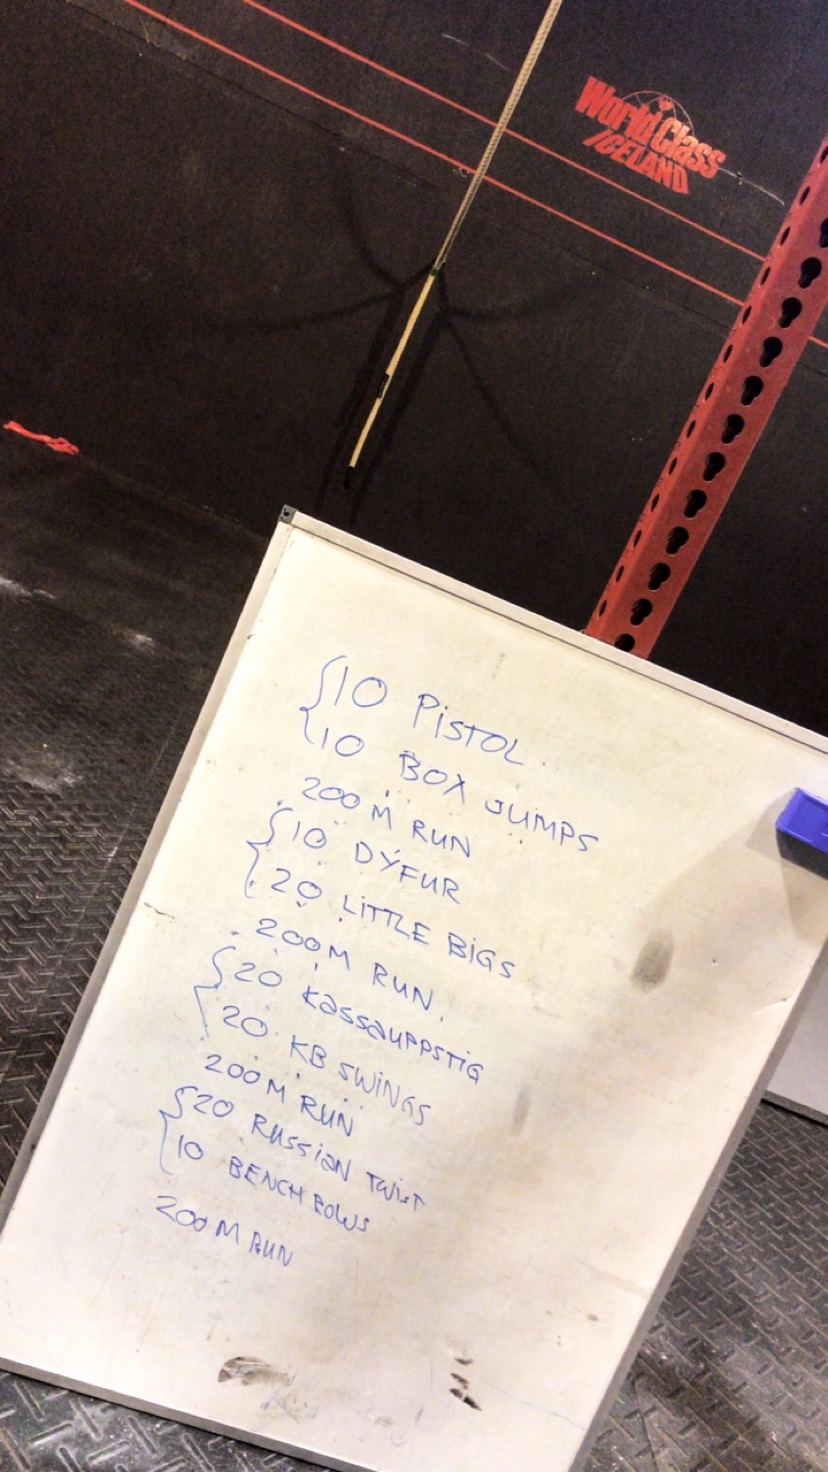 World Class
ICELAND
10 PISTOL
10 BOX JUMPS
200 M RUN
10 DÝFUR
20 LITTLE BIGS
200M RUN
20 KASSAUPPSTIG
20 KB SWINGS
200M RUN
20 RUSSIAN TWIST
10 BENCH ROWS
200M RUN